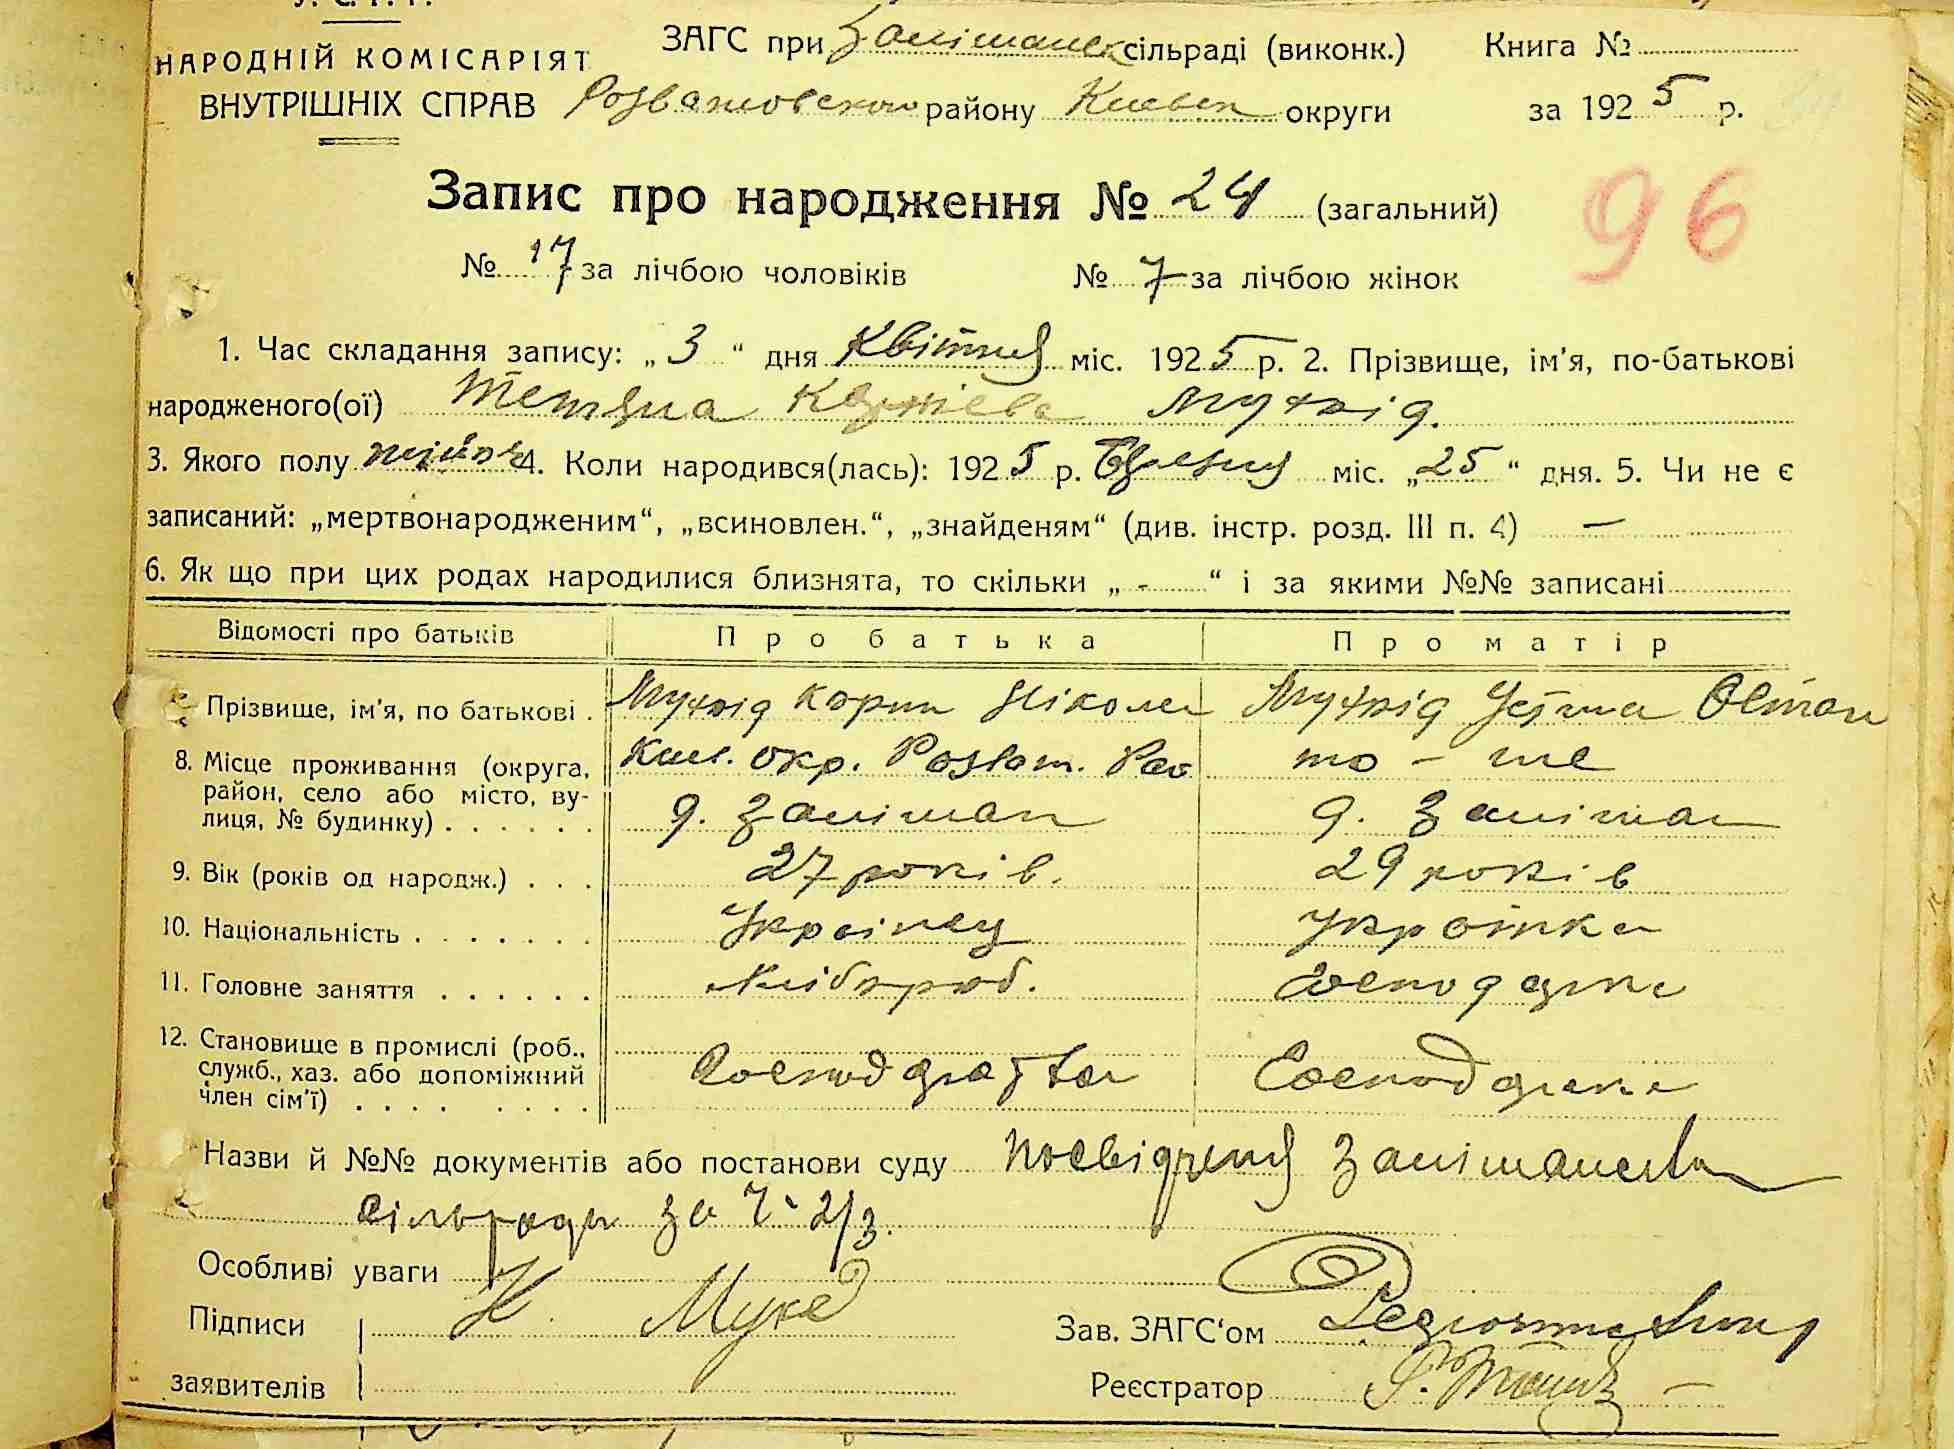 У. С. Р. Р.
НАРОДНІЙ КОМІСАРІЯТ
ВНУТРІШНІХ СПРАВ
ЗАГС при Заліманск сільраді (виконк.) Книга №
Розважовского району Киевск округи за 1925 р.
Запис про народження № 24 (загальний)
№ 17 за лічбою чоловіків № 7 за лічбою жінок
1. Час складання запису: „3“ дня Квітня міс. 1925 р. 2. Прізвище, ім'я, по-батькові
народженого(ої) Тетяна
3. Якого полу жіноч 4. Коли народився(лась): 1925 р. Березня міс. „25“ дня. 5. Чи не є
записаний: „мертвонародженим“, „всиновлен.“, „знайденям“ (див. інстр. розд. III п. 4) —
6. Як що при цих родах народилися близнята, то скільки „ - “ і за якими №№ записані
Відомості про батьків Про батька Про матір
Прізвище, ім'я, по батькові .
8. Місце проживання (округа, Киев. окр. то - же
район, село або місто, ву-
лиця, № будинку) . . . . . . д. Заліман д. Заліман
9. Вік (років од народж.) . . . 27 років. 29 років
10. Національність . . . . . . . Українец Украінка
11. Головне заняття . . . . . . Хлібороб. Господарка
12. Становище в промислі (роб.,
служб., хаз. або допоміжний Господарка
член сім'ї) . . . . . . . .
Назви й №№ документів або постанови суду Посвідченя Заліманської
сільради за Ч. 2/3.
Особливі уваги
Підписи
Зав. ЗАГС'ом
заявителів
Реєстратор
96